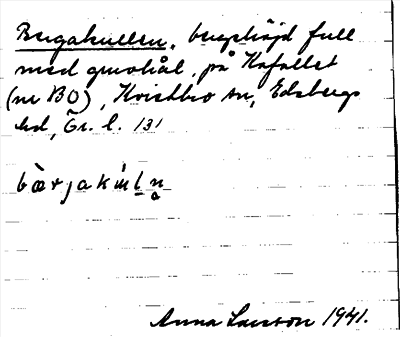 Bergakullen, bergshöjd full
med gruvhål, på Kafallet
(nr BO), Kvistbro sn, Edsbergs
hd, Ör. l. 131
bæ̀rjakúln
Anna Larsson 1941.